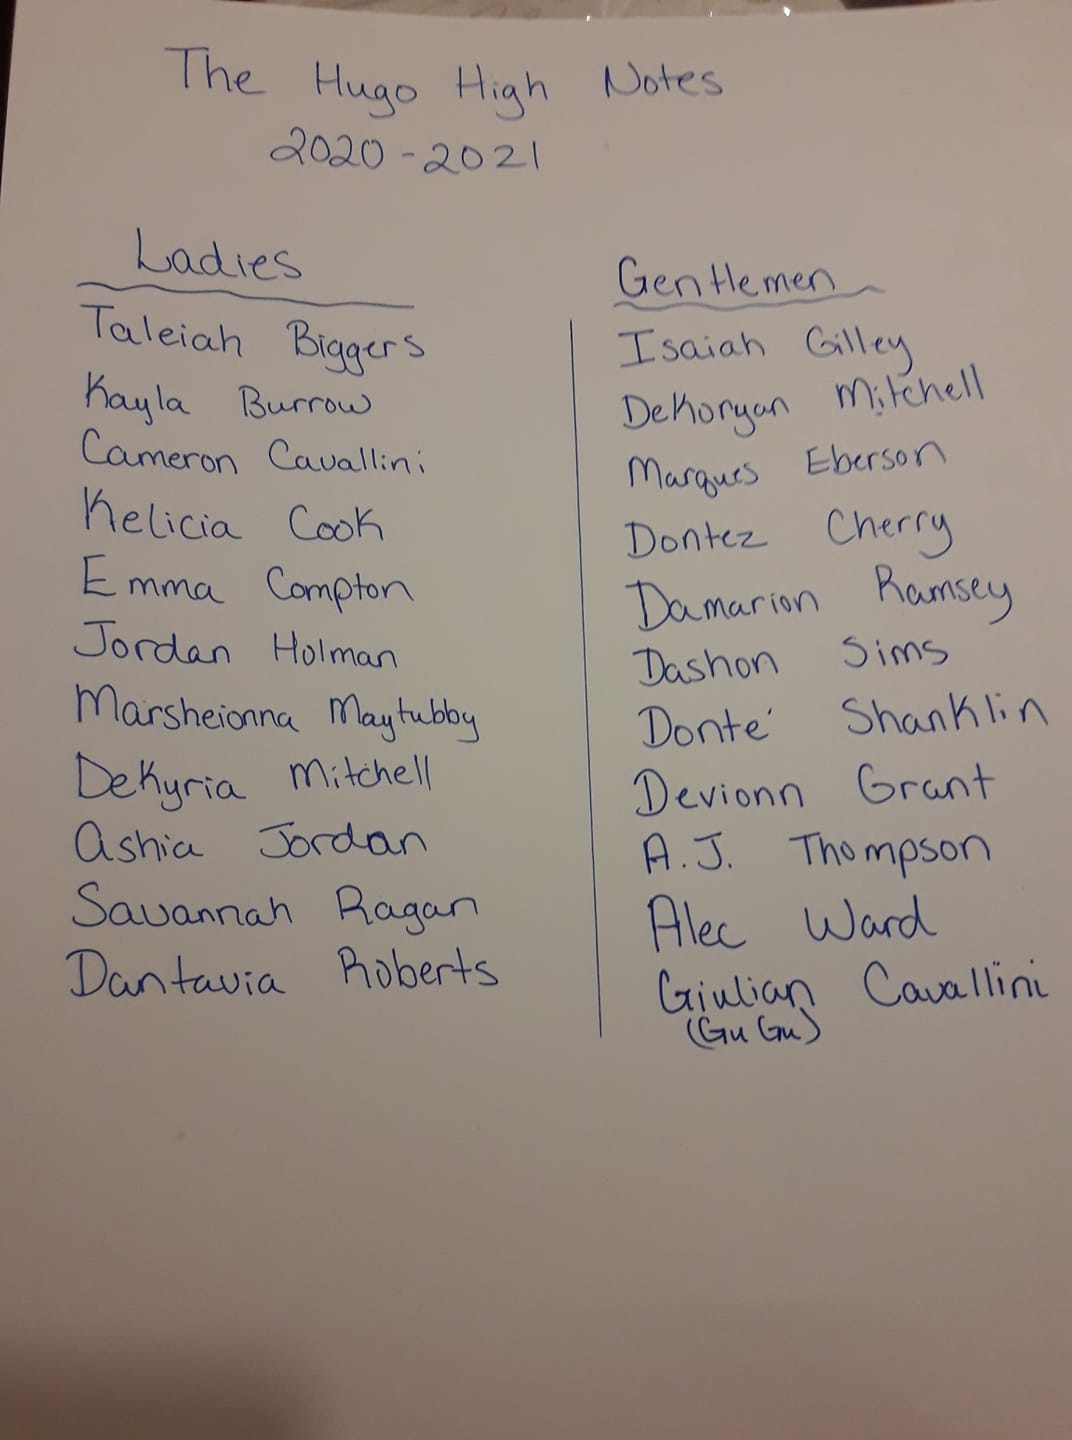 The Hugo High Notes
2020-2021
Ladies
Taleiah Biggers
Kayla Burrow
Cameron Cavallini
Kelicia Cook
Emma Compton
Jordan Holman
Marsheionna Maytubby
DeKyria Mitchell
Ashia Jordan
Savannah Ragan
Dantavia Roberts
Gentlemen
Isaiah Gilley
DeKoryan Mitchell
Marques Eberson
Dontez Cherry
Damarion Ramsey
Dashon Sims
Donte' Shanklin
Devionn Grant
A.J. Thompson
Alec Ward
Giulian Cavallini
(Gu Gu)